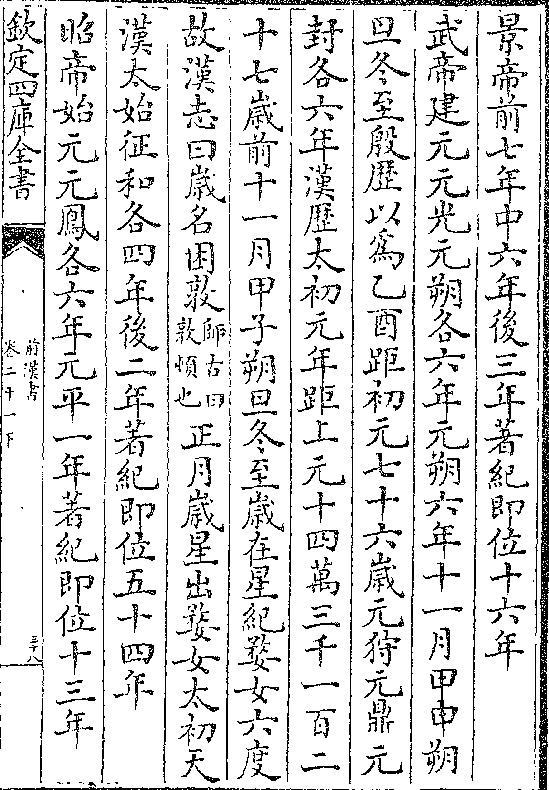 景帝前七年中六年後三年著紀即位十六年
武帝建元元光元朔各六年元朔六年十一月甲申朔
旦冬至殷歷以爲乙酉距初元七十六歲元狩元鼎元
封各六年漢歷太初元年距上元十四萬三千一百二
十七歲前十一月甲子朔旦冬至歲在星紀婺女六度
故漢志曰歲名困敦師古曰敦頓也正月歲星出婺女太初天
漢太始征和各四年後二年著紀即位五十四年
昭帝始元元鳳各六年元平一年著紀即位十三年
欽定四庫全書
前漢書
卷二十一下
三十八